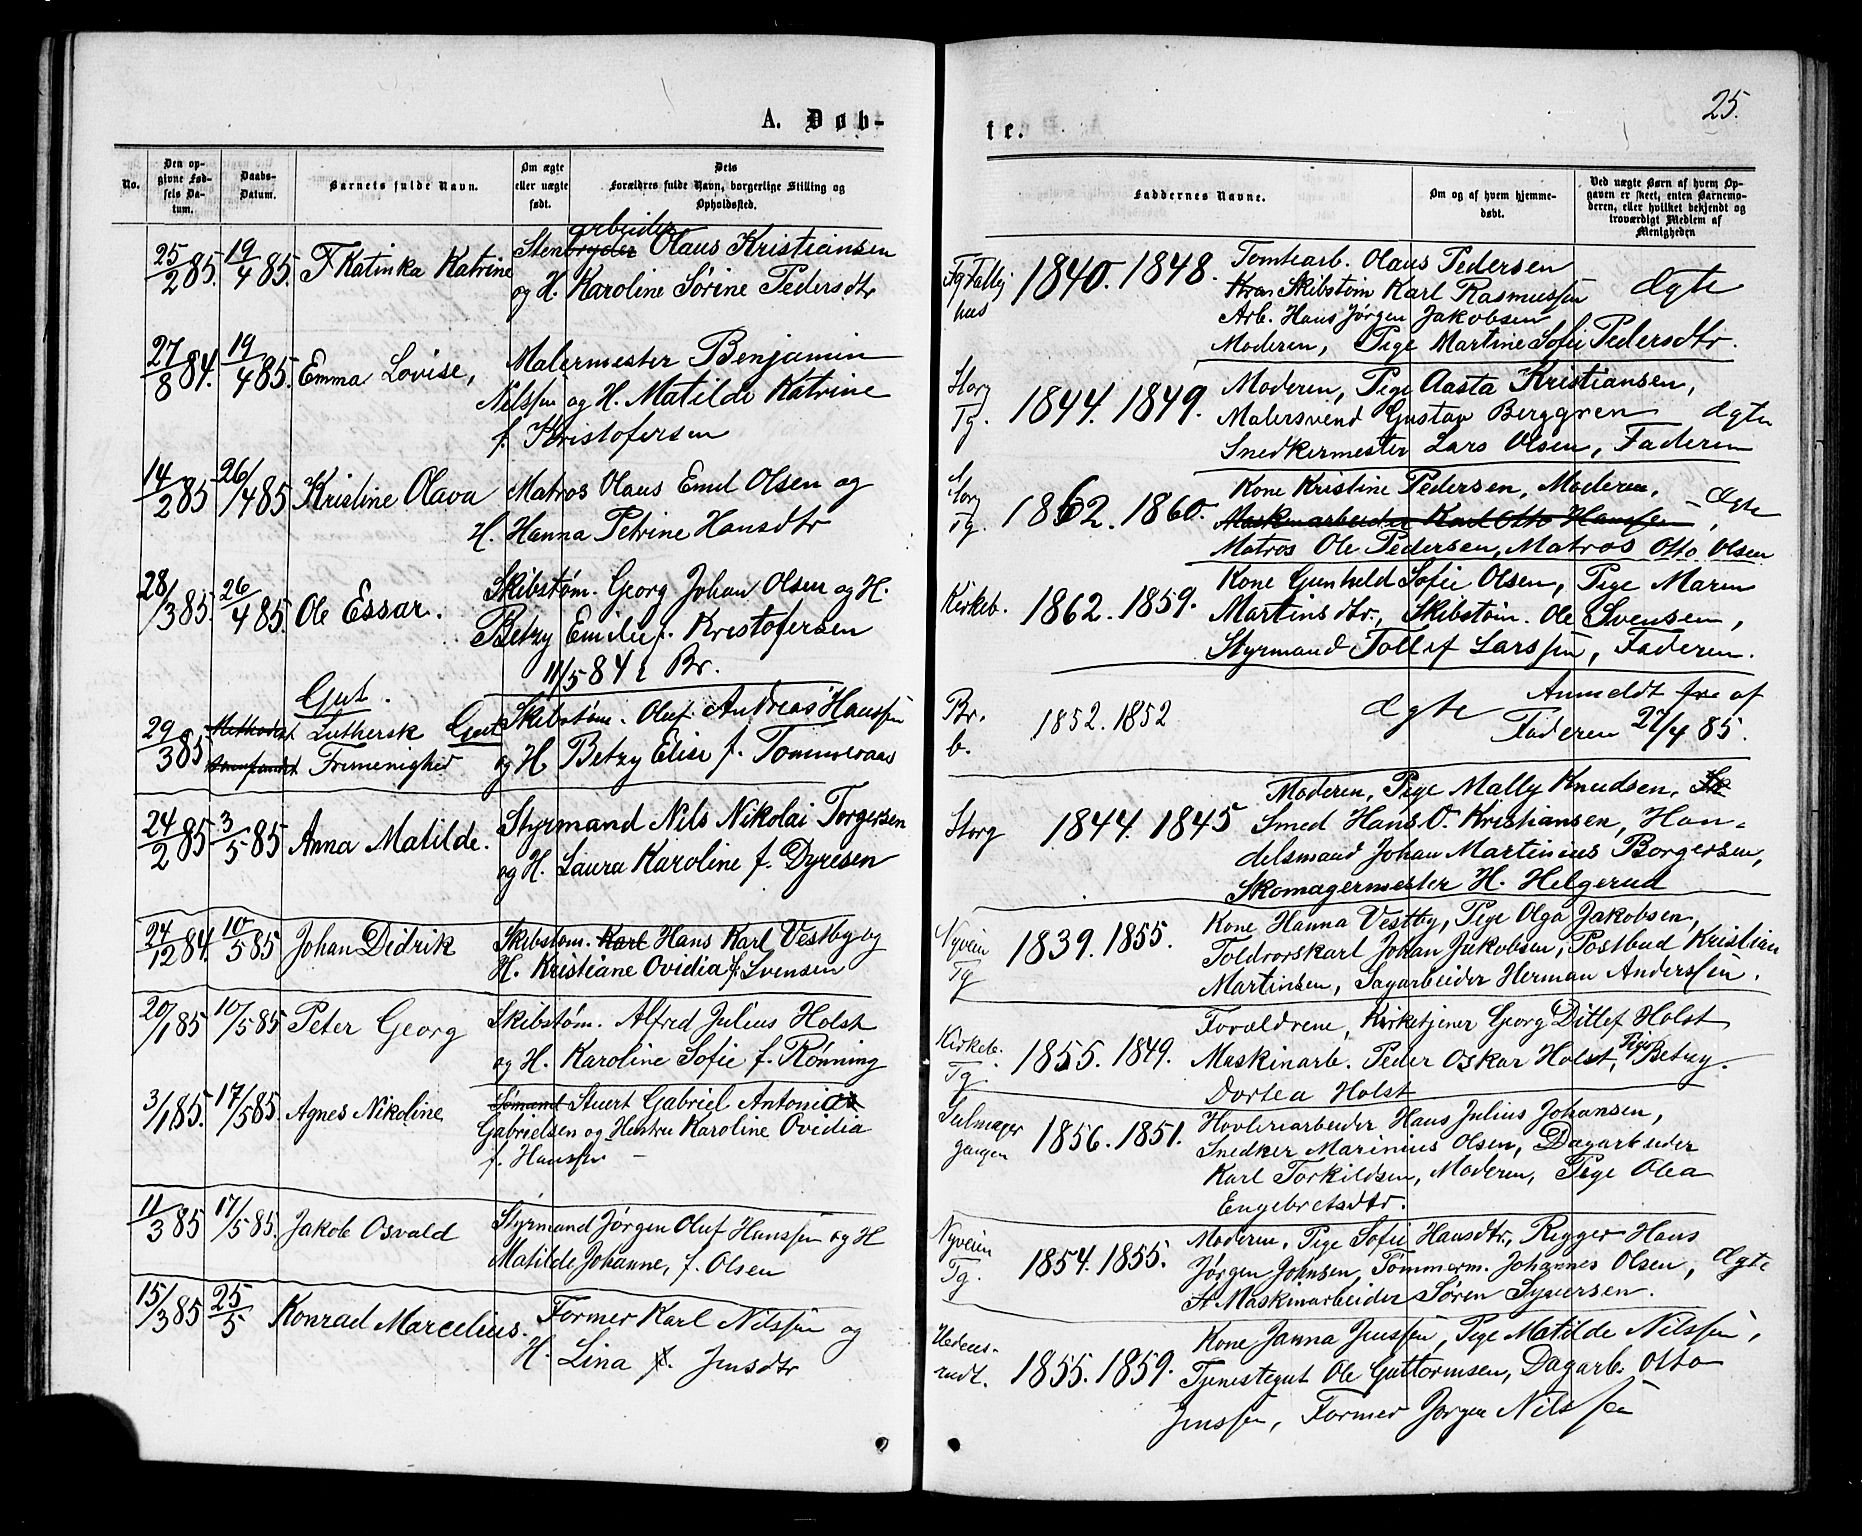 25.
A. Døb-
te.
No.
Den op-
givne Fød-
sels Da-
tum.
Daabs-
Datum.
Barnets fulde Navn.
Om ægte
eller uægte
født.
Dets
Forældres fulde Navn, borgerlige Stilling og
Opholdssted.
Faddernes Navne.
Om og af hvem hjemme-
døbt.
Ved uægte Børn af hvem Op-
gaven er skeet, enten Barnemo-
deren, eller hvilket bekjendt og
troværdigt Medlem af
Menigheden
25/2 85. 19/4 85. Katinka Katrine
arbeider
Stenbryder Olaus Kristiansen
og H. Karoline Sørine Pedersdtr
hus
1840. 1848.
Tomtearb. Olaus Pedersen
Skibstøm Karl Rasmussen
Arb. Hans Jørgen Jakobsen
Moderen, Pige Martine Sofie Pedersdtr.
Ægte
27/8 84. 19/4 85. Emma Lovise,
Malermester Benjamin
Nilssen og H. Matilde Katrine
f. Kristofersen
Storg
Tg.
1844. 1849.
Moderen, Pige Aasta Kristiansen,
Malersvend Gustav Berggren
Snedkermester Lars Olsen, Faderen
Ægte
14/2 85 26/4 85 Kristine Olava
Matros Olaus Emil Olsen og
H. Hanna Petrine Hansdtr
Storg
Tg.
1862. 1860.
Kone Kristine Pedersen, Moderen,
Maskinarbeider Karl Otto Hanssen,
Matros Ole Pedersen, Matros Otto Olsen
Ægte
28/3 85. 26/4 85. Ole Essar.
Skibstøm. Georg Johan Olsen og H.
Betzy Emilie f. Kristofersen
11/5 84 i Br.
Kirkeb.
1862. 1859.
Kone Gunhild Sofie Olsen, Pige Maren
Martinsdtr., Skibstøm. Ole Svensen,
Styrmand Tollef Larssen, Faderen.
Gut.
29/3 85 Methodist Luthersk Gut
Frimenighed
Skibstøm. Oluf Andreas Hanssen
og H Betzy Elise f. Tommeraas
Br.
b.
1852. 1852
Ægte
Anmeldt fra af
Faderen 27/4 85.
24/2 85 3/5 85 Anna Matilde.
Styrmand Nils Nikolai Torgersen
og H. Laura Karoline f. Dyresen
Storg
1844. 1845
Moderen, Pige Mally Knudsen, Sk
Smed Hans O. Kristiansen, Han-
delsmand Johan Martinius Borgersen,
Skomagermester H. Helgerud
24/12 84. 10/5 85 Johan Didrik
Skibstøm. Karl Hans Karl Vestby og
H. Kristiane Ovidia f. Svensen
Nyveien
Tg
1839. 1855.
Kone Hanna Vestby, Pige Olga Jakobsen,
Toldvorskarl Johan Jakobsen, Postbud Kristian
Martinsen, Sagarbeider Herman Anderssen.
20/1 85 10/5 85 Peter Georg
Skibstøm. Alfred Julius Holst
og H. Karoline Sofie f. Rønning
Kirkeb.
Tg.
1855. 1849.
Forældrene, Kirketjener Georg Ditlef Holst
Maskinarb. Peder Oskar Holst, Pige Betzy
Dortea Holst
3/1 85. 17/5 85. Agnes Nikoline
Sømand Stuert Gabriel Antonius
Gabrielsen og Hustru Karoline Ovidia
f. Hanssen
Seilmager
gangen
1856. 1851.
Høvleriarbeider Hans Julius Johansen,
Snedker Marinius Olsen, Dagarbeider
Karl Torkildsen, Moderen, Pige Olea
Engebretsdtr.
11/3 85 17/5 85. Jakob Osvald
Styrmand Jørgen Oluf Hanssen og H
Matilde Johanne, f. Olsen
Nyveien
Tg.
1854. 1855.
Moderen, Pige Sofie Hansdtr, Rigger Hans
Jørgen Johnsen, Tømmerm. Johannes Olsen,
Maskinarbeider Søren Syversen.
Ægte
15/3 85 25/5 Konrad Marcelius.
Former Karl Nilssen og
H. Lina f. Jensdtr
1855. 1859.
Kone Janna Jenssen, Pige Matilde Nilssen,
Tjenestegut Ole Guttormsen, Dagarb. Otto
Jenssen, Former Jørgen Nilssen